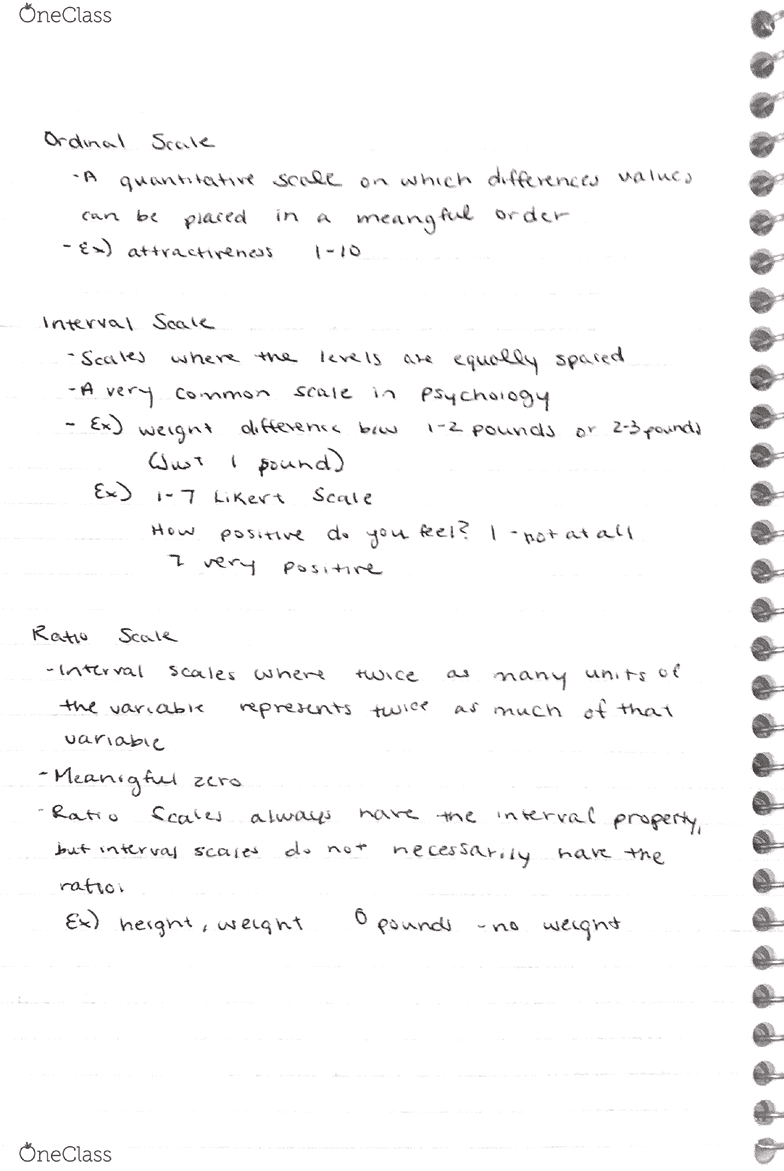 OneClass
Ordinal Scale
-A quantitative scale on which differences values
can be placed in a meangful order
-Ex) attractiveness 1-10
Interval Scale
-Scales where the levels are equally spaced
-A very common scale in psychology
- Ex) weight difference btw 1-2 pounds or 2-3 pounds
(Just 1 pound)
Ex) 1-7 Likert Scale
How positive do you feel? 1 -not at all
7 very positive
Ratio Scale
-Interval scales where twice as many units of
the variable represents twice as much of that
variable
-Meanigful zero
-Ratio Scales always have the interval property,
but interval scales do not necessarily have the
ratio.
Ex) height, weight 0 pounds -no weight
OneClass